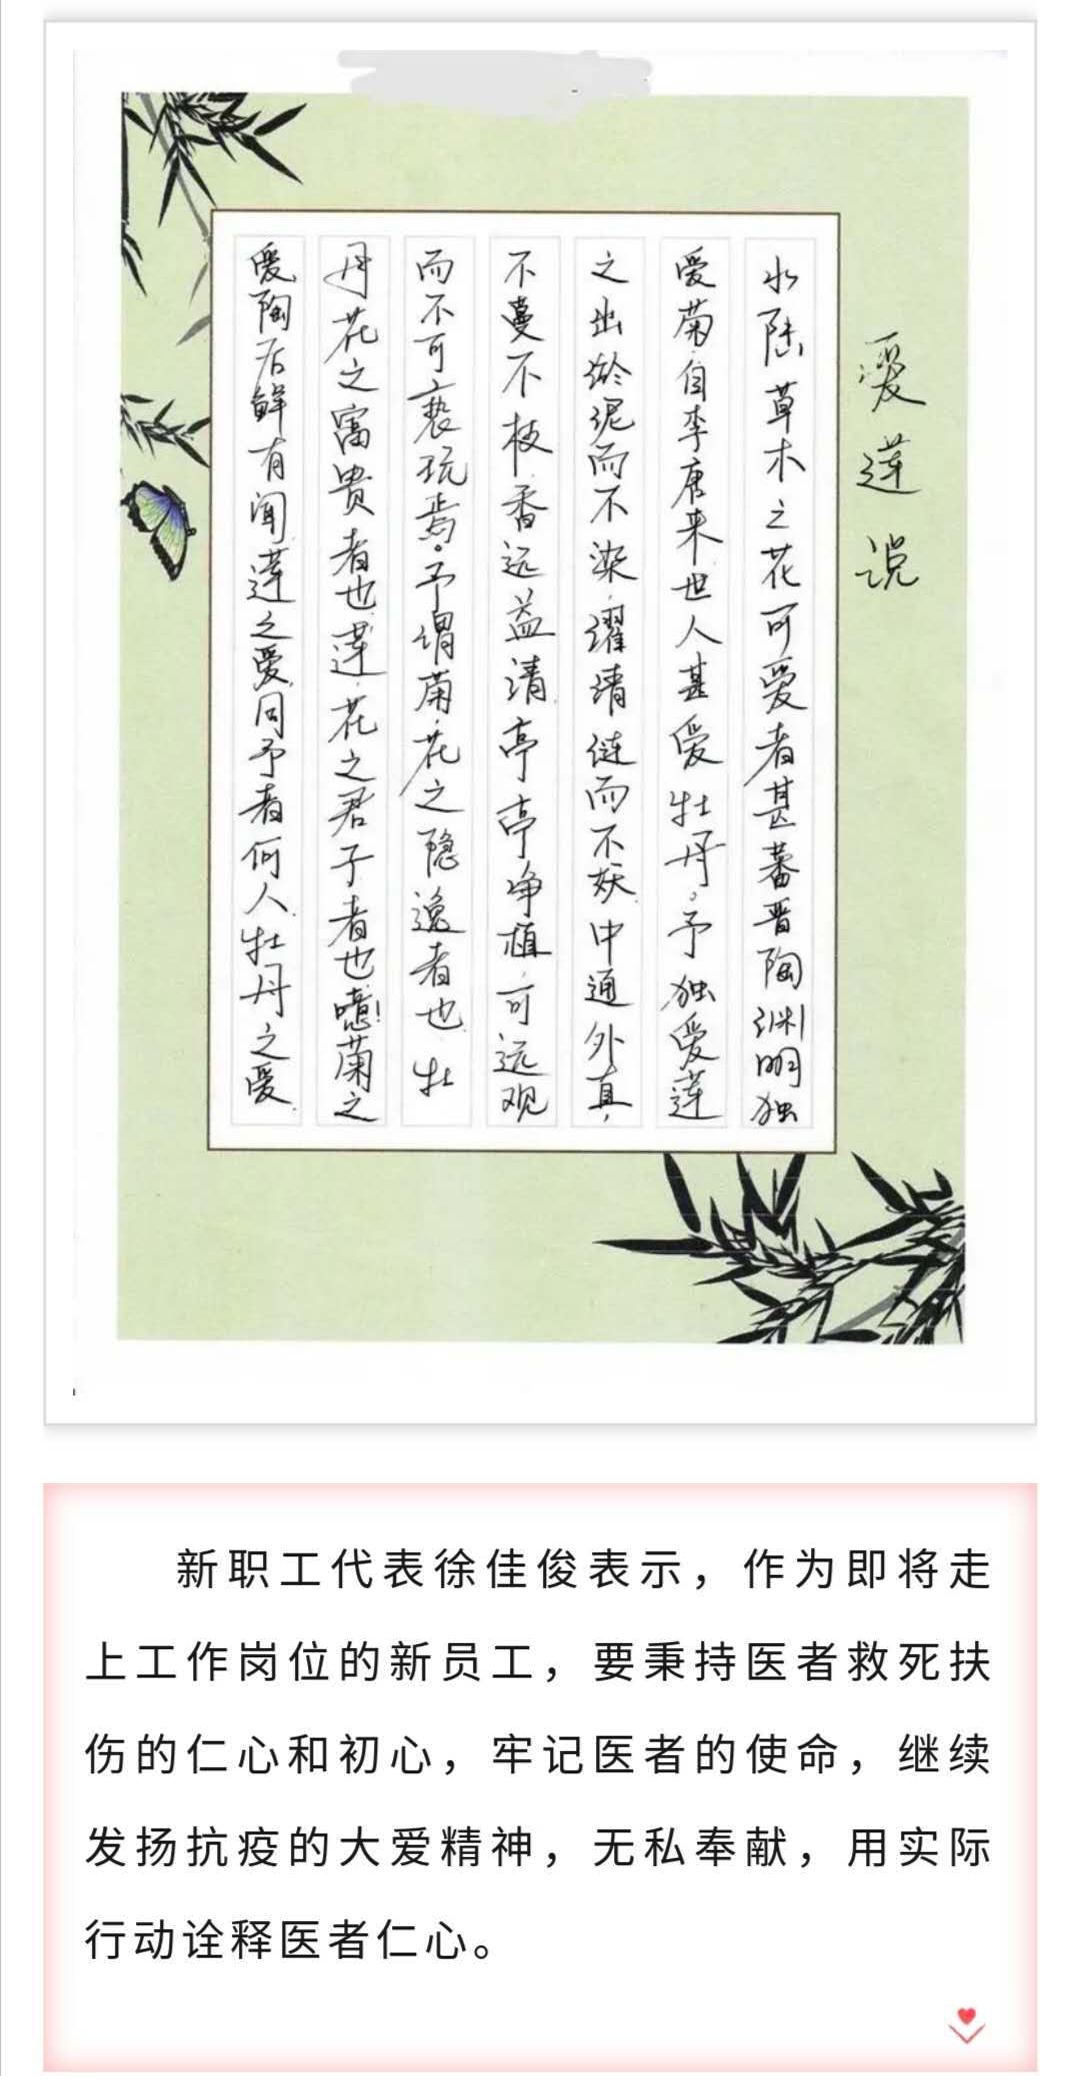 爱莲说
水陆草木之花可爱者甚蕃晋陶渊明独
爱菊.自李唐来世人甚爱牡丹。予独爱莲
之出淤泥而不染.濯清涟而不妖中通外直,
不蔓不枝.香远益清.亭亭净植.可远观
而不可亵玩焉。予谓菊.花之隐逸者也.牡
丹花之富贵者也.莲.花之君子者也.噫!菊之
爱陶后鲜有闻.莲之爱.同予者何人.牡丹之爱.
新职工代表徐佳俊表示，作为即将走
上工作岗位的新员工，要秉持医者救死扶
伤的仁心和初心，牢记医者的使命，继续
发扬抗疫的大爱精神，无私奉献，用实际
行动诠释医者仁心。